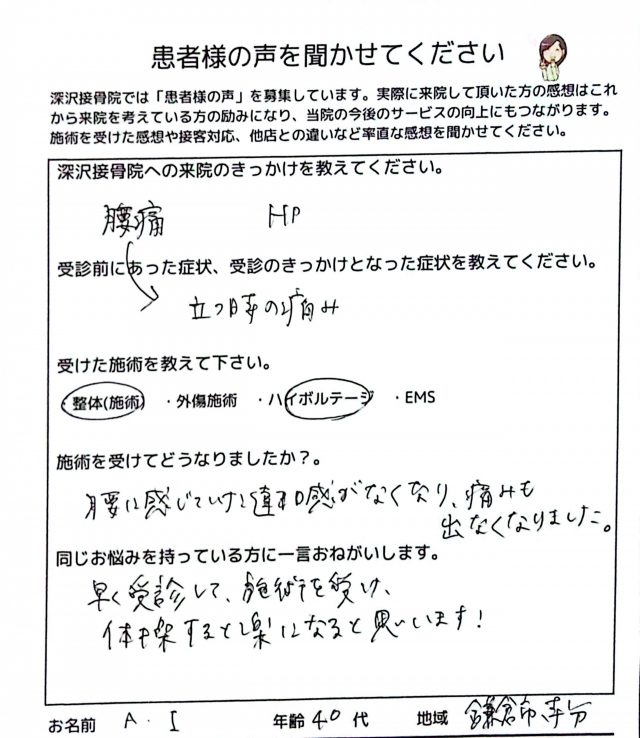 患者様の声を聞かせてください
深沢接骨院では「患者様の声」を募集しています。実際に来院して頂いた方の感想はこれ
から来院を考えている方の励みになり、当院の今後のサービスの向上にもつながります。
施術を受けた感想や接客対応、他店との違いなど率直な感想を聞かせてください。
深沢接骨院への来院のきっかけを教えてください。
腰痛 HP
受診前にあった症状、受診のきっかけとなった症状を教えてください。
立つ時の痛み
受けた施術を教えて下さい。
・整体(施術) ・外傷施術 ・ハイボルテージ ・EMS
施術を受けてどうなりましたか？。
腰に感じていた違和感がなくなり、痛みも
出なくなりました。
同じお悩みを持っている方に一言おねがいします。
早く受診して、施術を受け、
体操すると楽になると思います!
お名前 A.I 年齢 40 代 地域 鎌倉市寺分